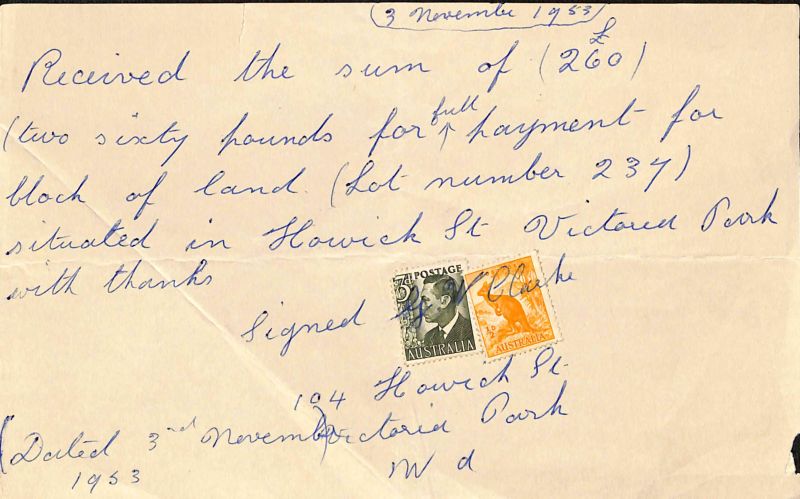 (3 November 1953)
Received the sum of (£260)
(two sixty pounds for full payment for
block of land. (Lot number 237)
situated in Howick St Victoria Park
with thanks
3D POSTAGE
AUSTRALIA
½D
AUSTRALIA
Signed G V Clarke
104 Howick St
Victoria Park
(Dated 3rd November)
1953